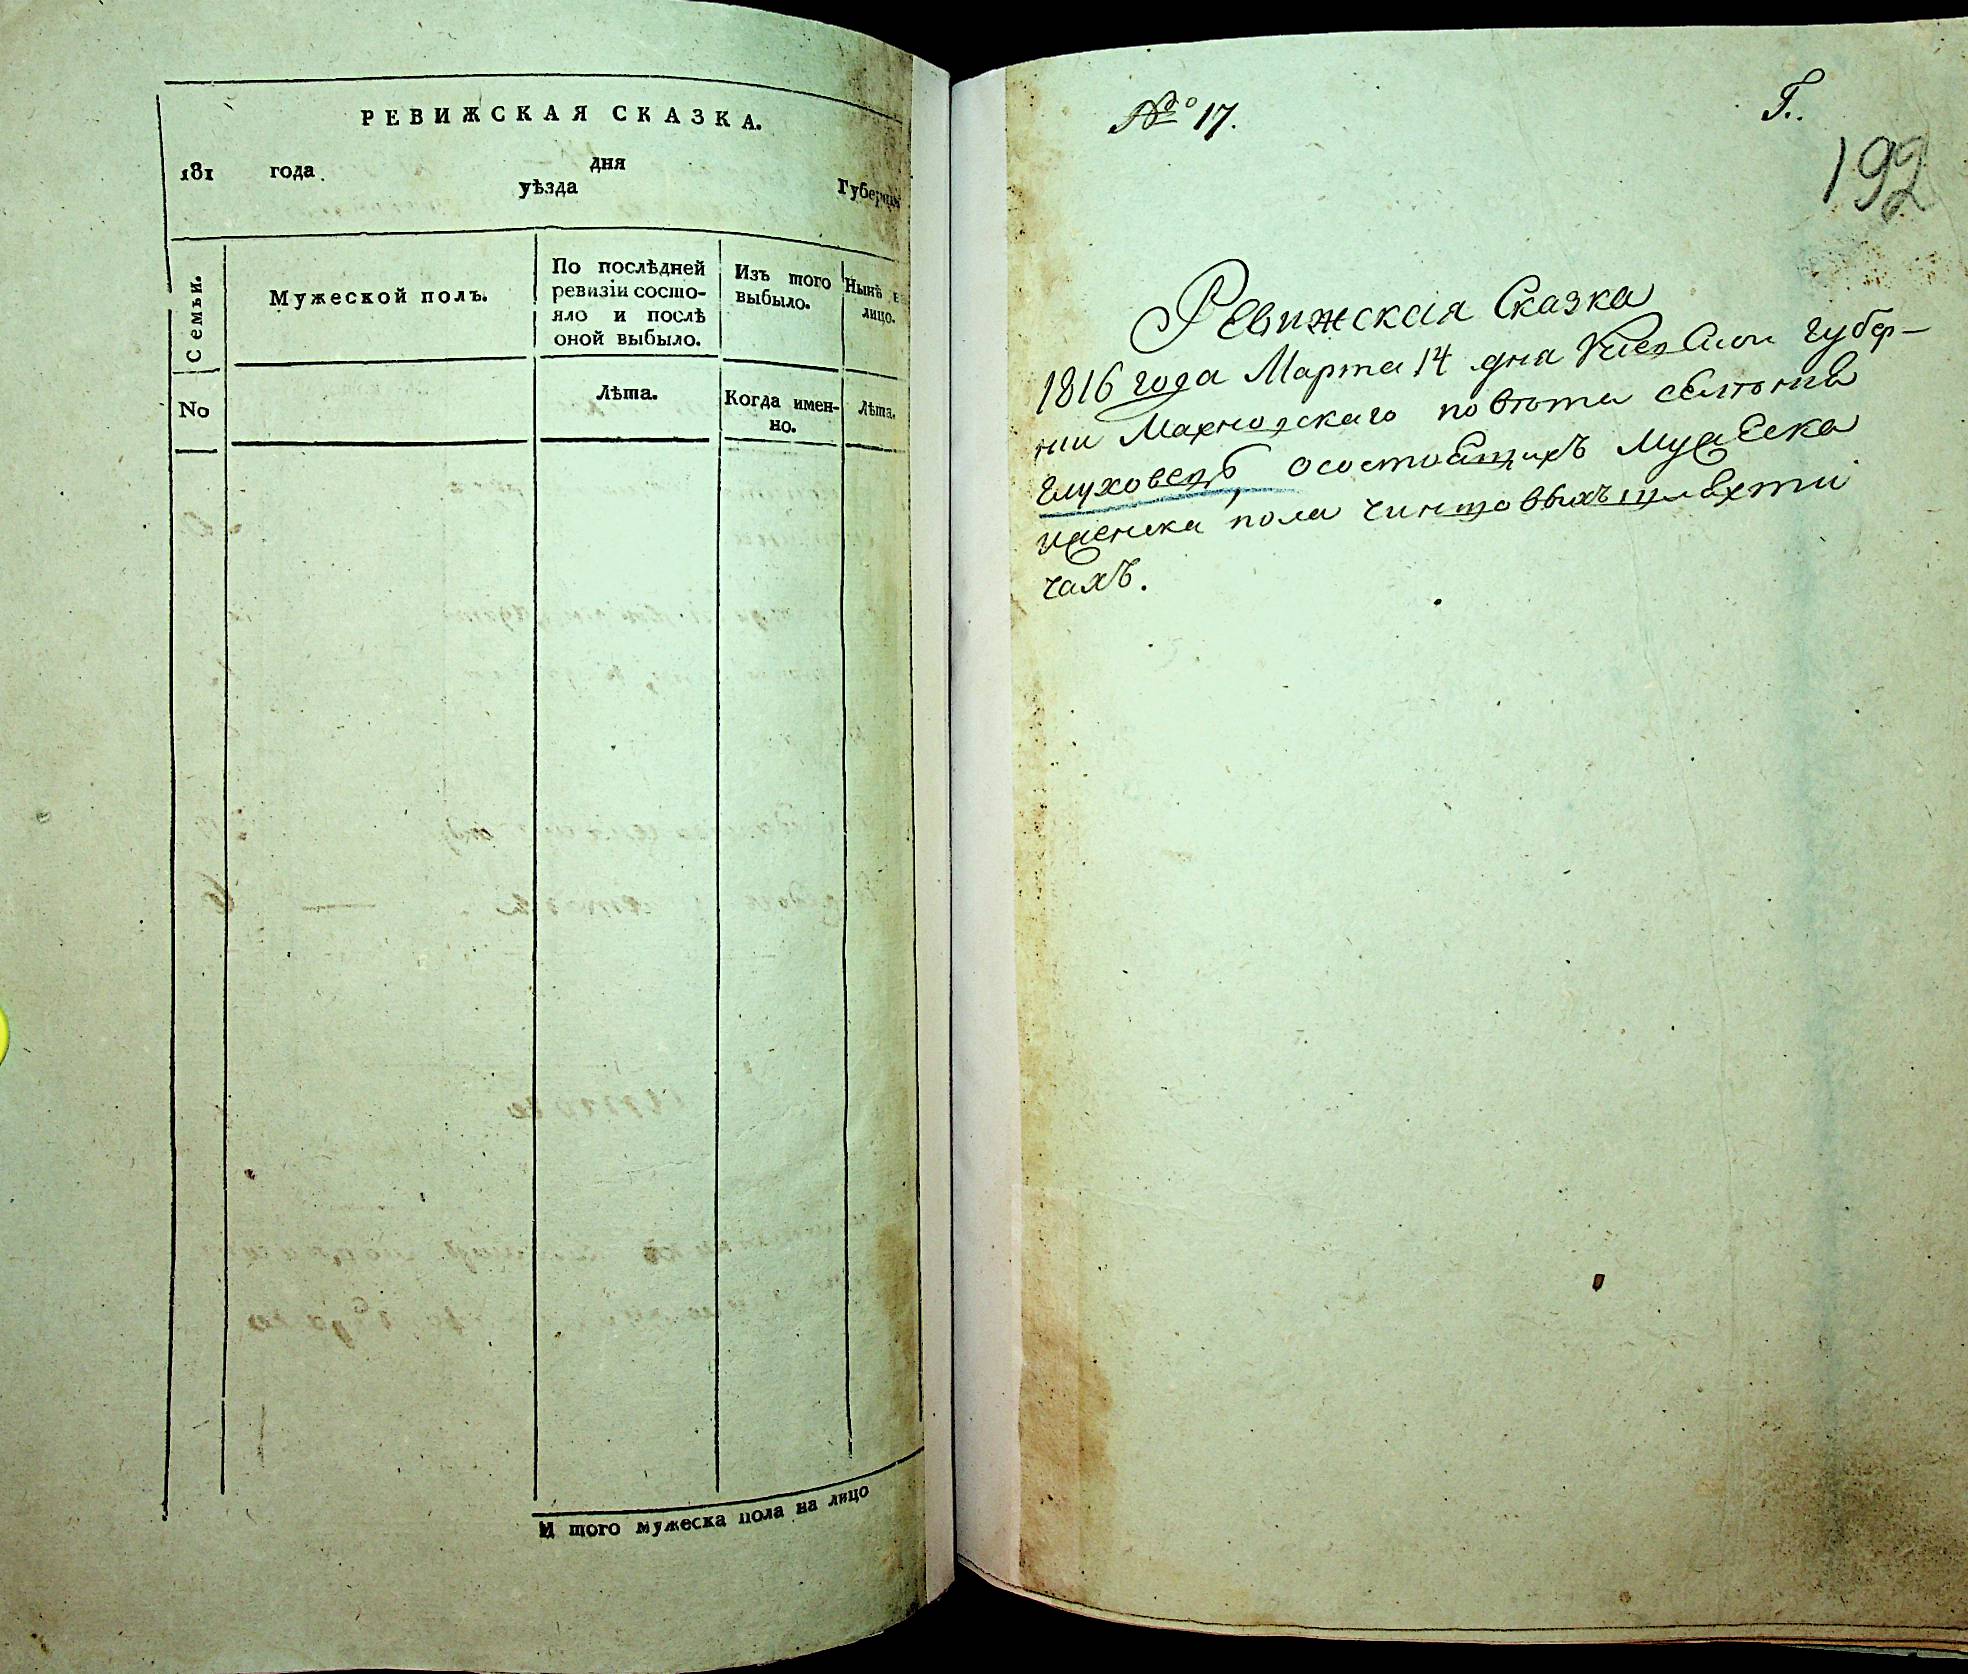 РЕВИЖСКАЯ СКАЗКА.
181 года дня
уѣзда Губерніи
Семьи.
Мужеской полъ.
По послѣдней
ревизіи состо-
яло и послѣ
оной выбыло.
Изъ того
выбыло.
Нынѣ
лицо.
No
Лѣта.
Когда имен-
но.
Лѣта.
И того мужеска пола на лицо
№ 17.
Г.
192
Ревижская Сказка
1816 года Марта 14 дна Киевской губер-
нии Махновскаго повѣта селѣнив
Глуховецъ, осостоащихъ мужеска
иженска пола чиншовыхъ шлахти
чахъ.